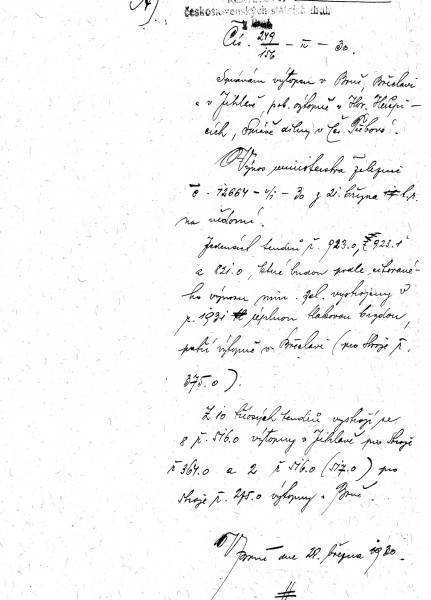 A)
československých státních drah
v Brně
Čís. 249/156 - IV - 30.
Správám výtopen v Brně, Břeclavi
a v Jihlavě, pob. výtopně v Hor. Heršpi-
cích, Správě dílny v Čes. Třebové.
Výnos ministerstva železnic
č. 12664 - VI/1 - 30 z 21. března t.r.
na vědomí.
Jedenáct tendrů ř. 923.0, 923.1
a 821.0, které budou podle citované-
ho výnosu min. žel. vystrojeny
r. 1931 úplnou tlakovou brzdou,
patří výtopně v Břeclavi (pro stroje ř.
375.0).
Z 10 tříosých tendrů vystrojí se
8 ř. 516.0 výtopny v Jihlavě pro stroje
ř. 364.0 a 2 ř. 516.0 (517.0) pro
stroje ř. 275.0 výtopny v Brně.
V Brně dne 28. března 1930.